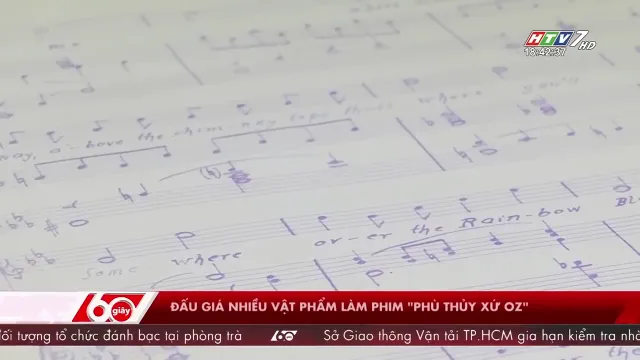 HTV7 HD
18:42:37
way, a-bove the chim-ney tops that's where you'll
Some where over-er the Rain-bow Bl
60 giây ĐẤU GIÁ NHIỀU VẬT PHẨM LÀM PHIM "PHÙ THỦY XỨ OZ"
đối tượng tổ chức đánh bạc tại phòng trà 60giây Sở Giao thông Vận tải TP.HCM gia hạn kiểm tra nhà